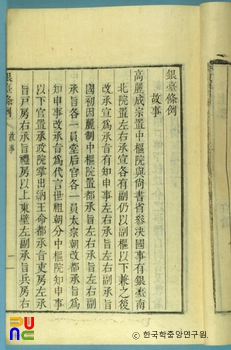 銀臺條例
故事
高麗成宗置中樞院與尙書省參決國事有銀臺南
北院置左右承宣各有副仍以副樞以下兼之後
改承宣爲承旨有知申事左右承旨左右副承旨
國初因麗制中樞院置都承旨左右承旨左右副
承旨各一員堂后官一員太宗朝改都承旨爲
知申事改承旨爲代言世祖朝分中樞院知申事
以下官置承政院掌出納王命都承旨吏房左承
旨戶房右承旨禮房以上東壁左副承旨兵房右
銀臺條例 故事 一
ⓒ 한국학중앙연구원.